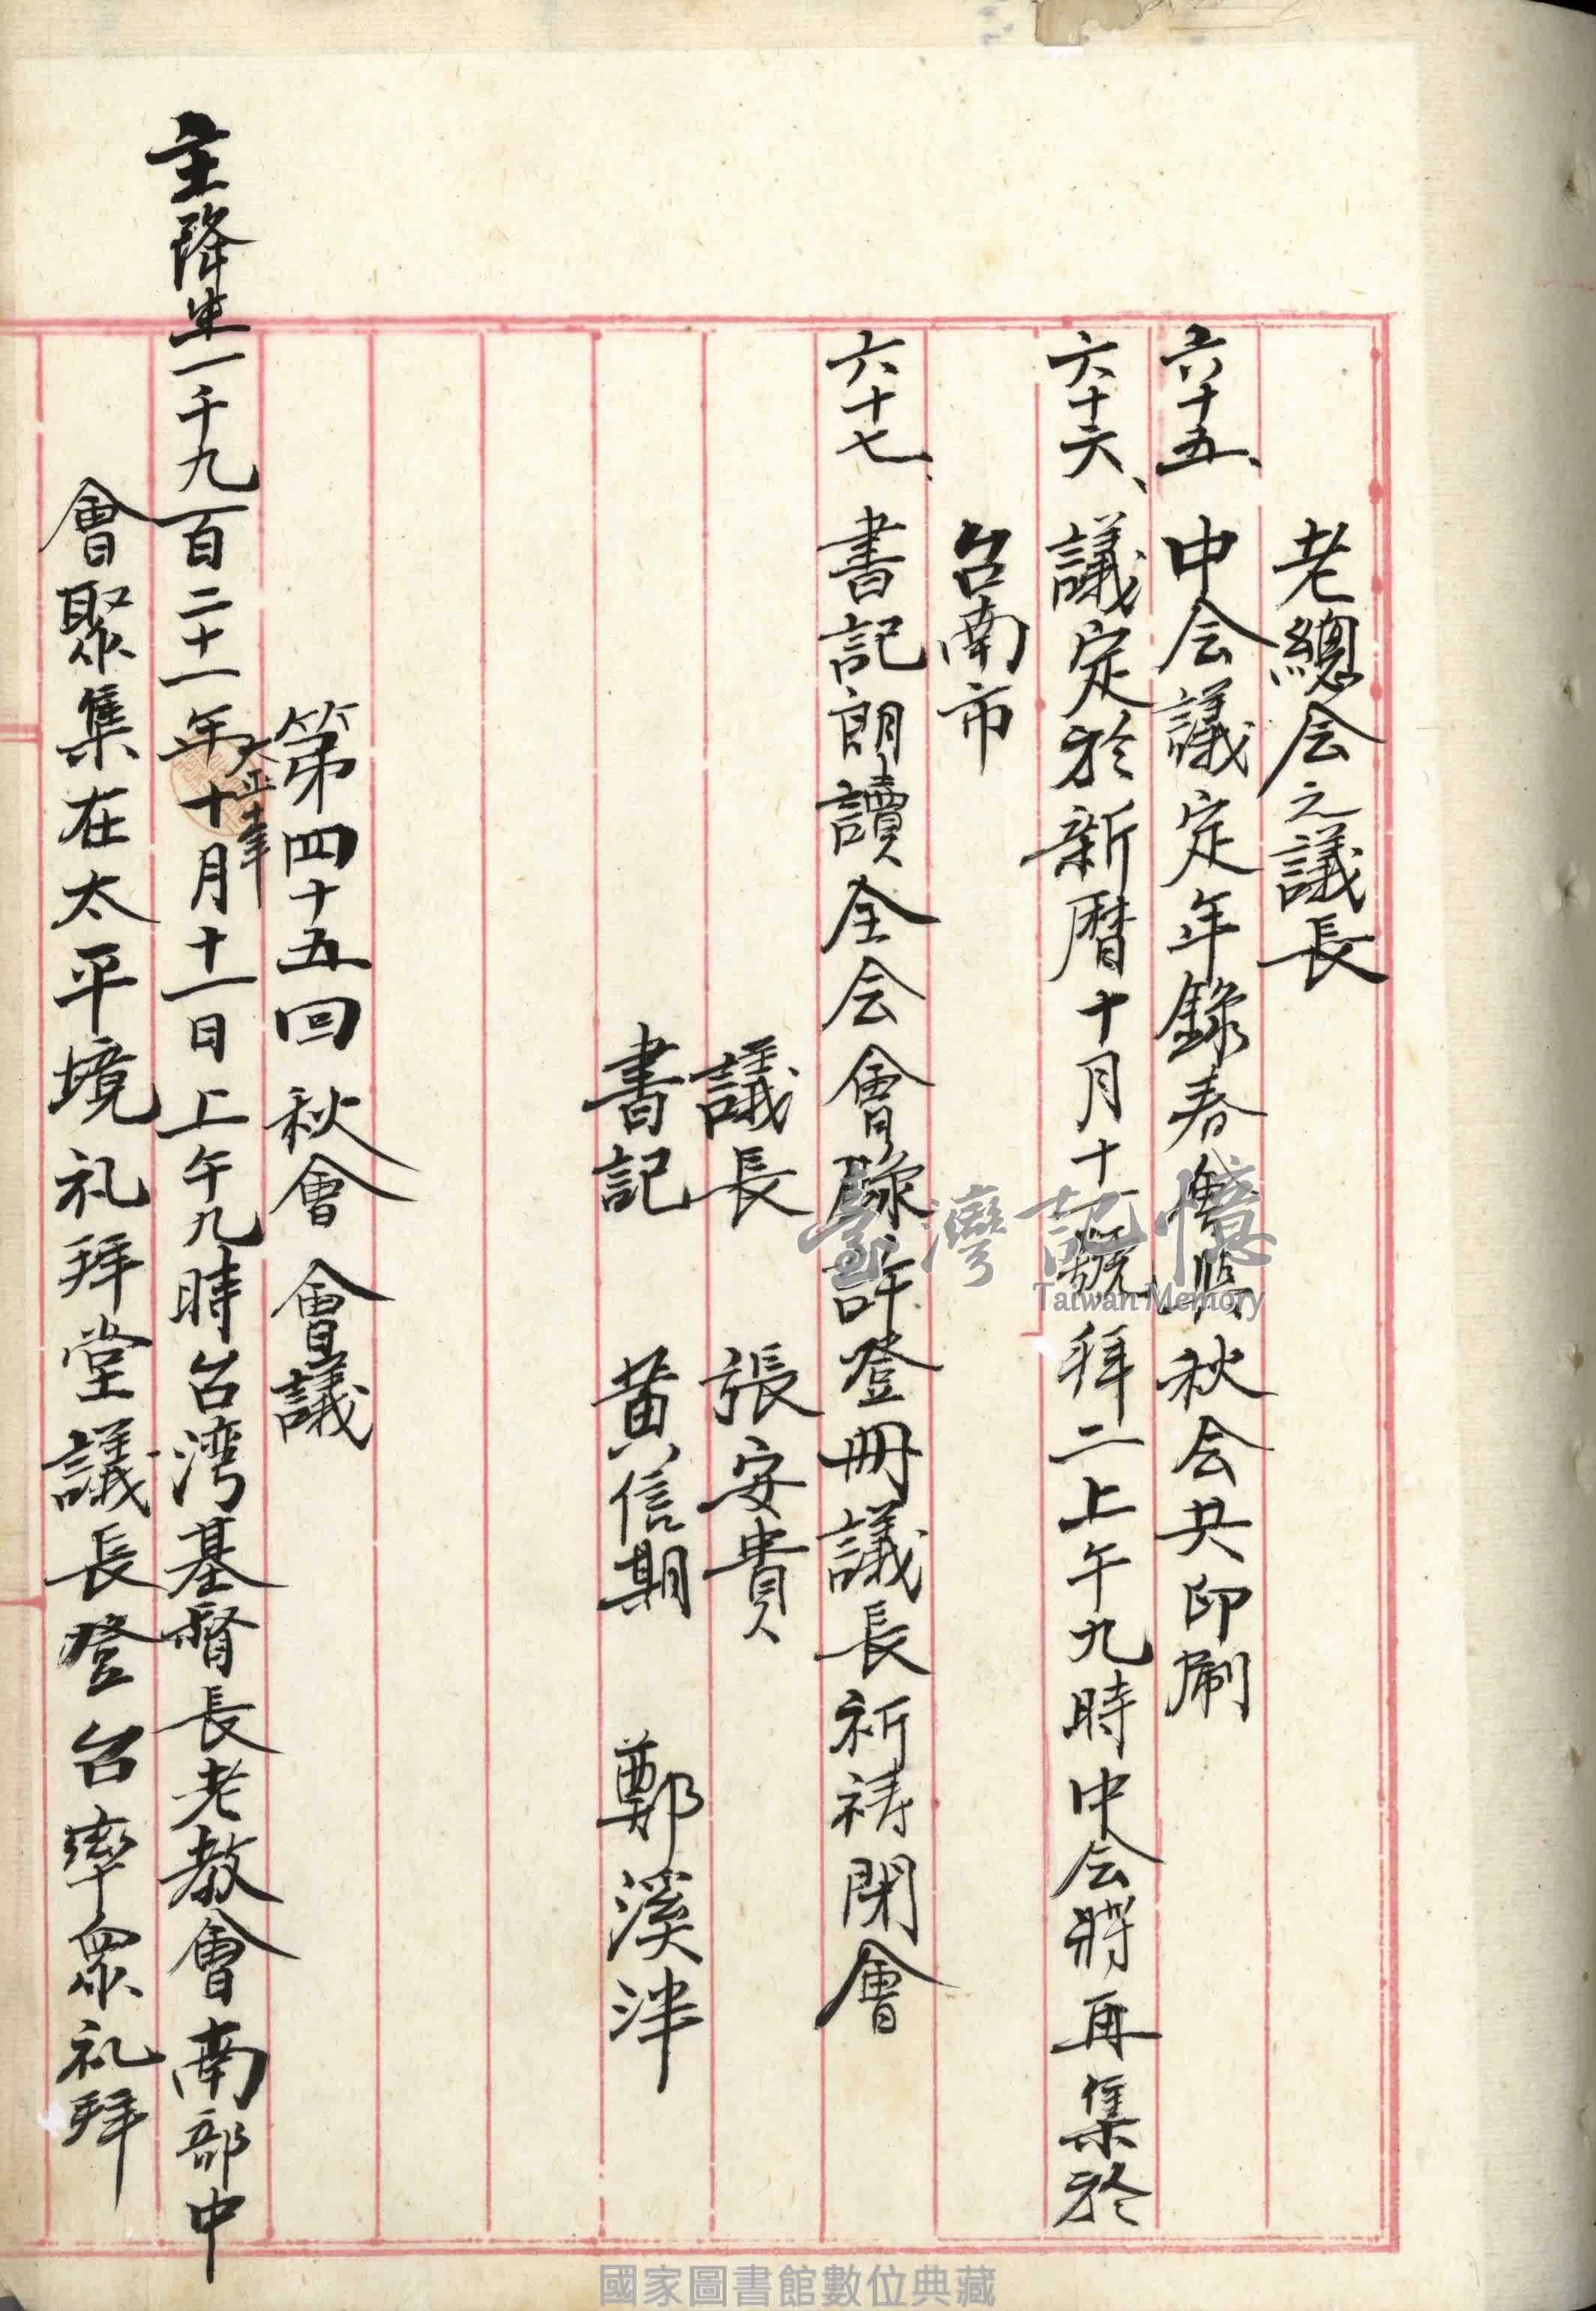 老總会之議長
六十五、中会議定年錄春會與秋会共印刷
六十六、議定於新曆十月十一號拜二上午九時中会將再集於
台南市
六十七、書記朗讀全会會錄許登冊議長祈祷閉會
議長 張安貴
書記 黄信期 鄭溪泮
第四十五回 秋會 會議
大正十年
主降生一千九百二十一年十月十一日上午九時台湾基督長老教會南部中
會聚集在太平境礼拜堂議長登台率眾礼拜
臺灣記憶
Taiwan Memory
國家圖書館數位典藏